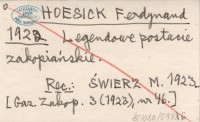 HOESICK Ferdynand
1922 Legendowe postacie
zakopiańskie.
Rec.: ŚWIERZ M. 1923
[Gaz. Zakop. 3 (1923), nr 46.]